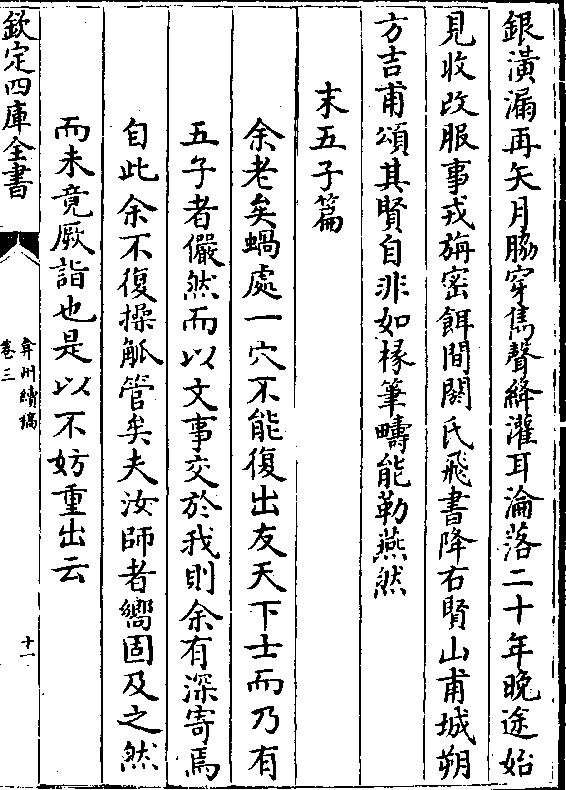 銀潢漏再矢月脇穿雋聲絳灌耳淪落二十年晚途始
見收改服事戎旃密餌間閼氏飛書降右賢山甫城朔
方吉甫頌其賢自非如椽筆疇能勒燕然
末五子篇
余老矣蝸處一穴不能復出友天下士而乃有
五子者儼然而以文事交於我則余有深寄焉
自此余不復操觚管矣夫汝師者嚮固及之然
而未竟厥詣也是以不妨重出云
欽定四庫全書
弇州續稿
卷三
十一